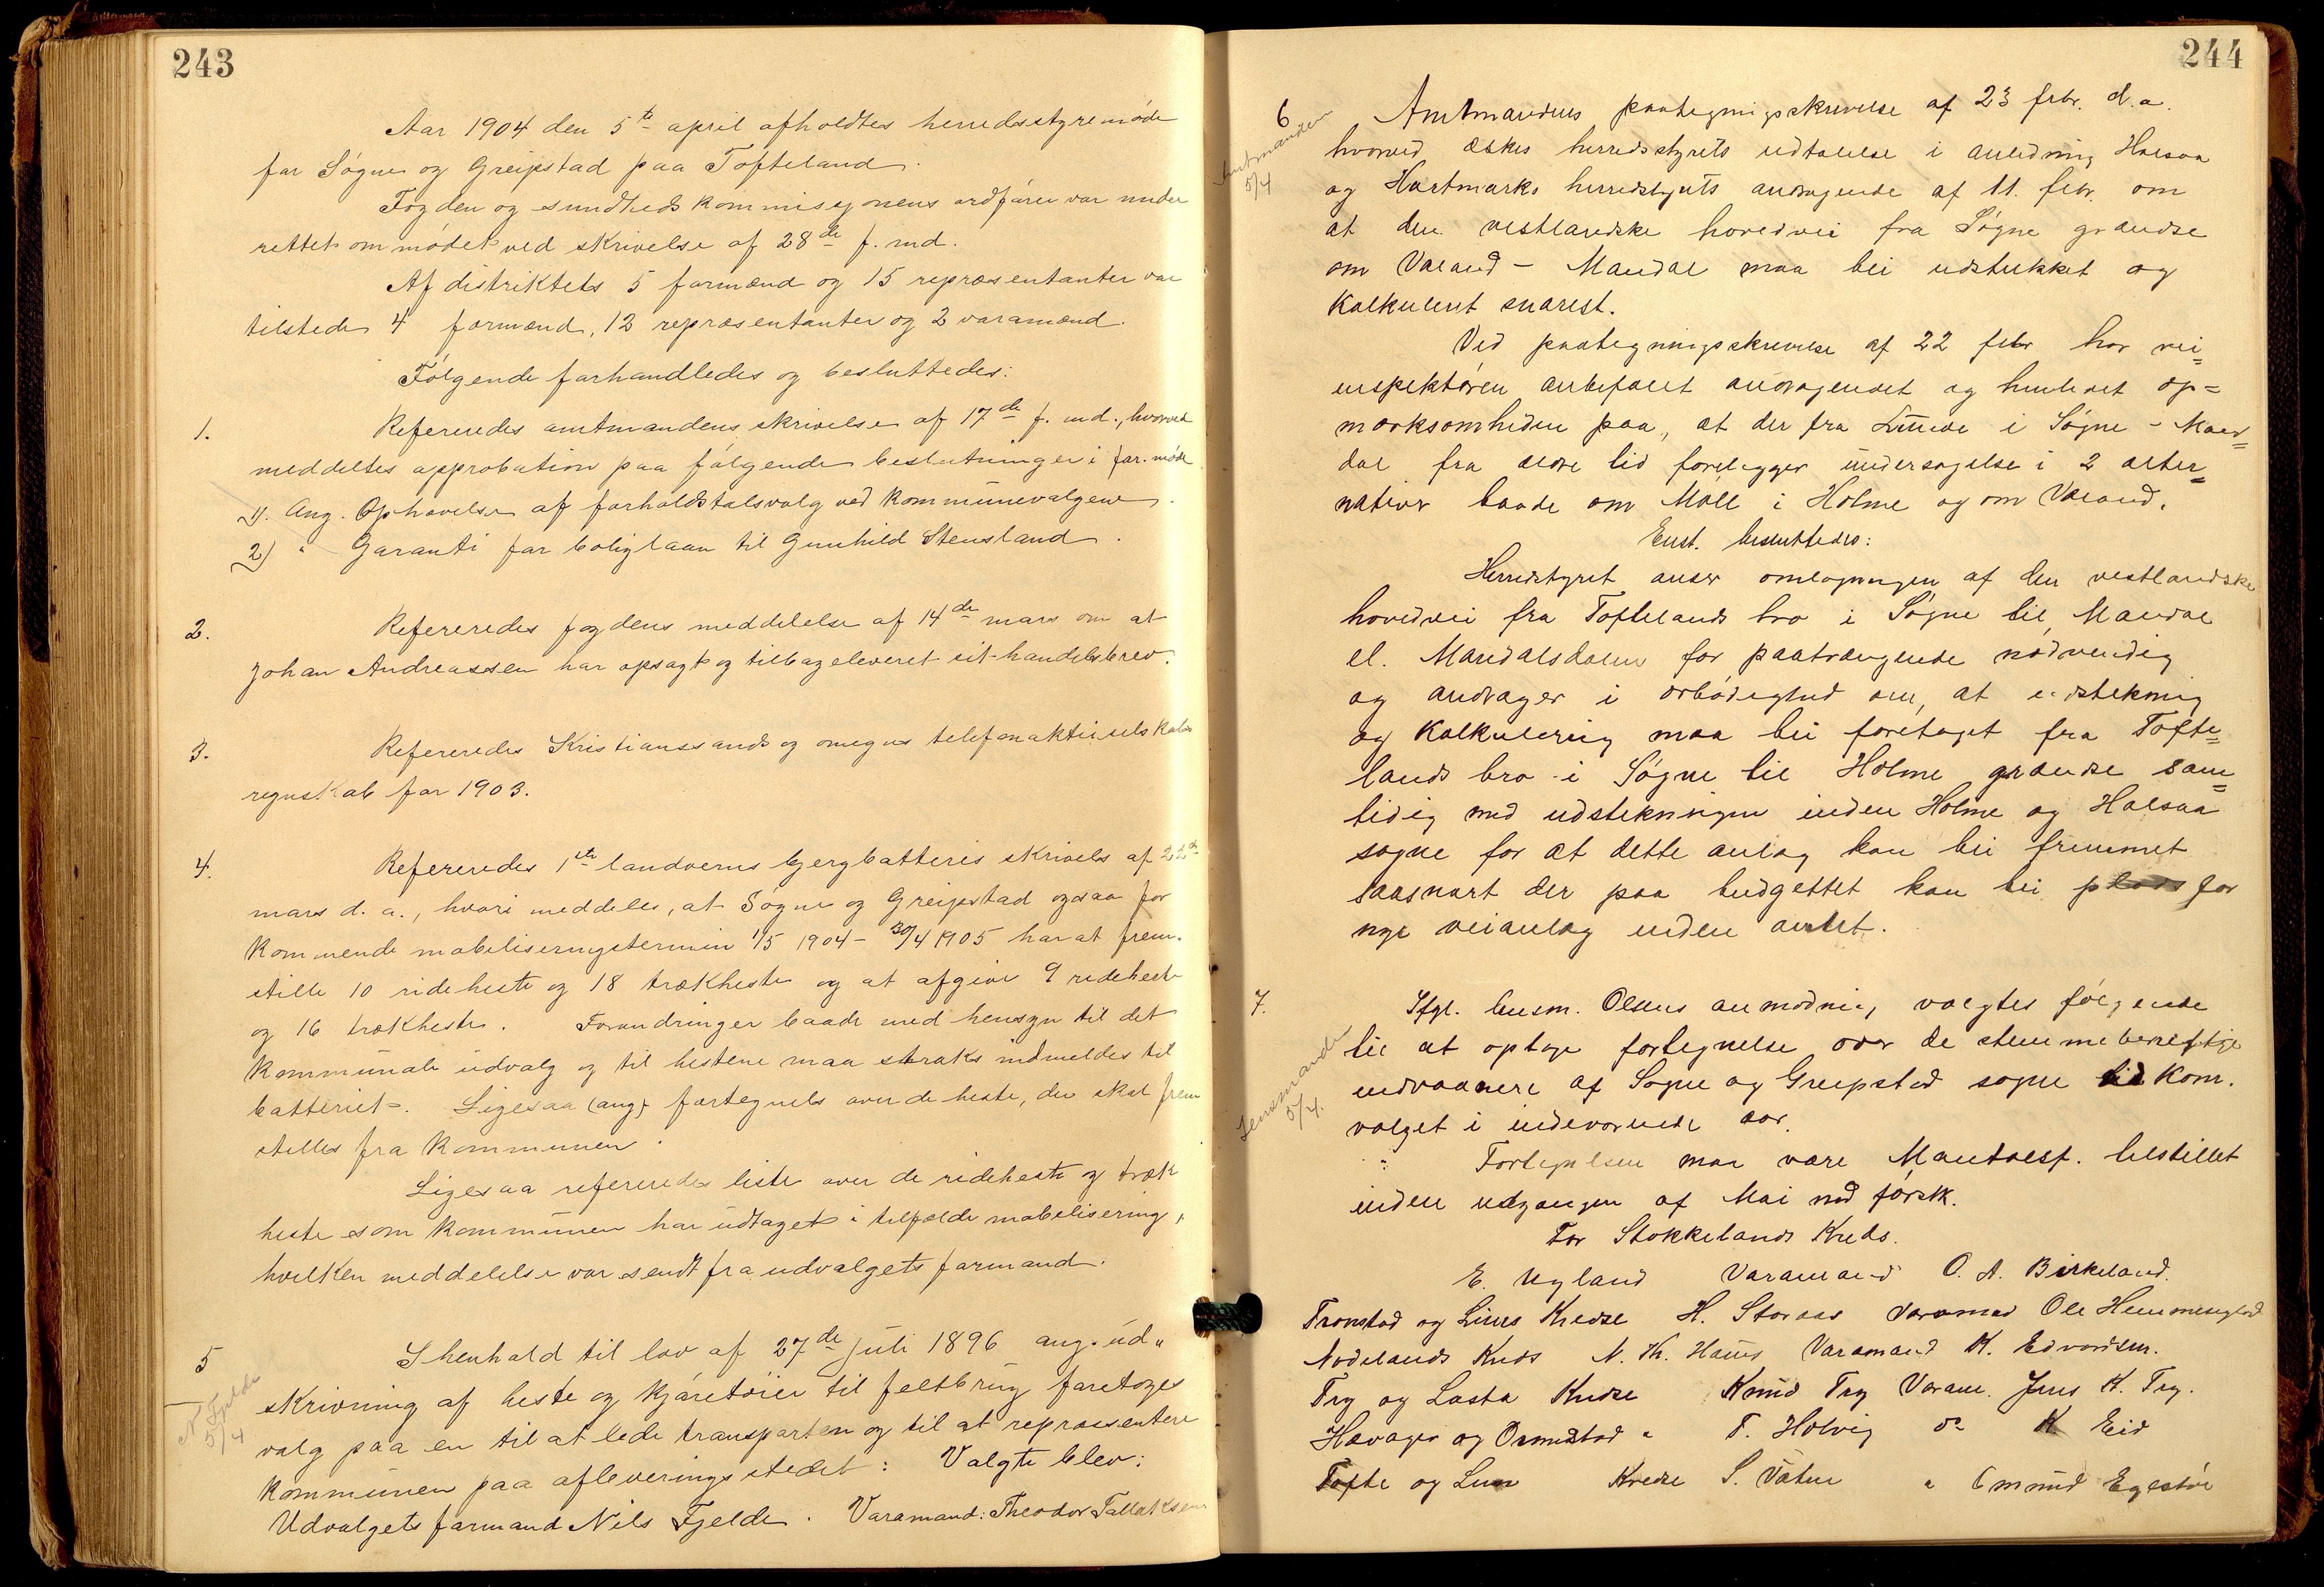 243
Aar 1904 den 5te april afholdtes herredsstyremöde
for Søgne og Greipstad paa Tofteland.
Fogden og sundhedskommisjonens ordfører var under
rettet om mødet ved skrivelse af 28de f. md.
Af distriktets 5 formænd og 15 repræsentanter var
tilstede 4 formænd, 12 repræsentanter og 2 varamænd.
Følgende forhandledes og besluttedes:
1. Refereredes amtmandens skrivelse af 17de f. md., hvorved
meddeltes approbation paa følgende beslutninger i for. møde
1). Ang. Ophævelse af forholdstalsvalg ved kommunevalgene.
2) " Garanti for boliglaan til Gunhild Stensland.
2. Refereredes fogdens meddelelse af 14de mars om at
Johan Andreassen har opsagt og tilbageleveret sit handelsbrev.
3. Refereredes Kristianssands og omegns telefonaktieselskabs
regnskab for 1903.
4. Refereredes 1ste landverns bergbatteris skrivelse af 22de
mars d. a., hvori meddeles, at Søgne og Greipstad ogsaa for
kommende mobiliseringstermin 1/5 1904 - 30/4 1905 har at frem-
stille 10 rideheste og 18 trækheste og at afgive 9 rideheste
og 16 trækheste. Forandringer baade med hensyn til det
kommunale udvalg og til hestene maa straks indmeldes til
batteriet. Ligesaa (ang) fortegnelse over de heste, der skal frem
stilles fra kommunen.
Ligesaa refereredes liste over de rideheste og træk
heste som kommunen har udtaget i tilfælde mobilisering,
hvilken meddelelse var sendt fra udvalgets formand.
5 I henhold til lov af 27de juli 1896 ang. ud"
skrivning af heste og kjøretøier til feltbrug foretoges
N. Fjelde
5/4
valg paa en til at lede transporten og til at repræsentere
kommunen paa afleveringsstedet: Valgte blev:
Udvalgets formand Nils Fjelde. Varamand: Theodor Tallaksen
244
6 Amtmandens paategningsskrivelse af 23 febr. d.a.
Amtmanden
5/4
hvorved æskes herredsstyrets udtalelse i anledning Halsaa
og Hartmarks herredstyrets andragende af 11. febr. om
at den vestlandske hovedvei fra Søgne grændse
om Valand - Mandal maa bli udstukket og
kalkuleret snarest.
Ved paategningsskrivelse af 22 febr har vei=
inspektøren anbefalet andragendet og henledet op=
mærksomheden paa, at der fra Lunde i Søgne - Man=
dal fra ældre tid foreligger undersøgelse i 2 alter=
nativer baade om Møll i Holme og om Valand.
Enst. besluttedes:
Herredstyret anser omlægningen af den vestlandske
hovedvei fra Toftelands bro i Søgne til Mandal
el. Mandalsdalen for paatrængende nødvendig
og andrager i ærbødighed om, at udstekning
og kalkulering maa bli foretaget fra Tofte=
lands bro i Søgne til Holme grændse sam=
tidig med udstekningen inden Holme og Halsaa
sogne for at dette anlæg kan bli fremmet
saasnart der paa budgettet kan bli plads for
nye veianlæg inden amtet.
7. Ifgl. lensm. Olsens anmodning valgtes følgende
Lensmanden
5/4.
til at optage fortegnelse over de stemmeberettige
indvaanere af Søgne og Greipstad sogne til kom.
valget i indeværende aar.
Fortegnelsen maa være Mantalsf. tilstillet
inden udgangen af Mai md førstk.
For Stokkelands Kreds.
E. Ugland Varamand O. A. Birkeland.
Tronstad og Lunds Kredse H. Storaas Varamand Ole Hemmestad
Nodelands Kreds N. Th. Haus Varamand K. Edvardsen.
Try og Lasta Kredse Knud Try Varam. Jens K. Try.
Havager og Ormestad " T. Holvig do K Eid
Tofte og Lun Kredse S. Vatne " Omund Egestøl